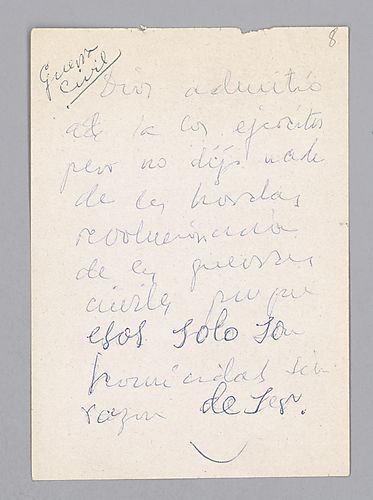 8
Guerra
Civil
Dios admitió
a los ejércitos
pero no dijo nada
de las hordas
revolucionarias
de las guerras
civiles porque
esos solo son
homicidas sin
razon de ser.